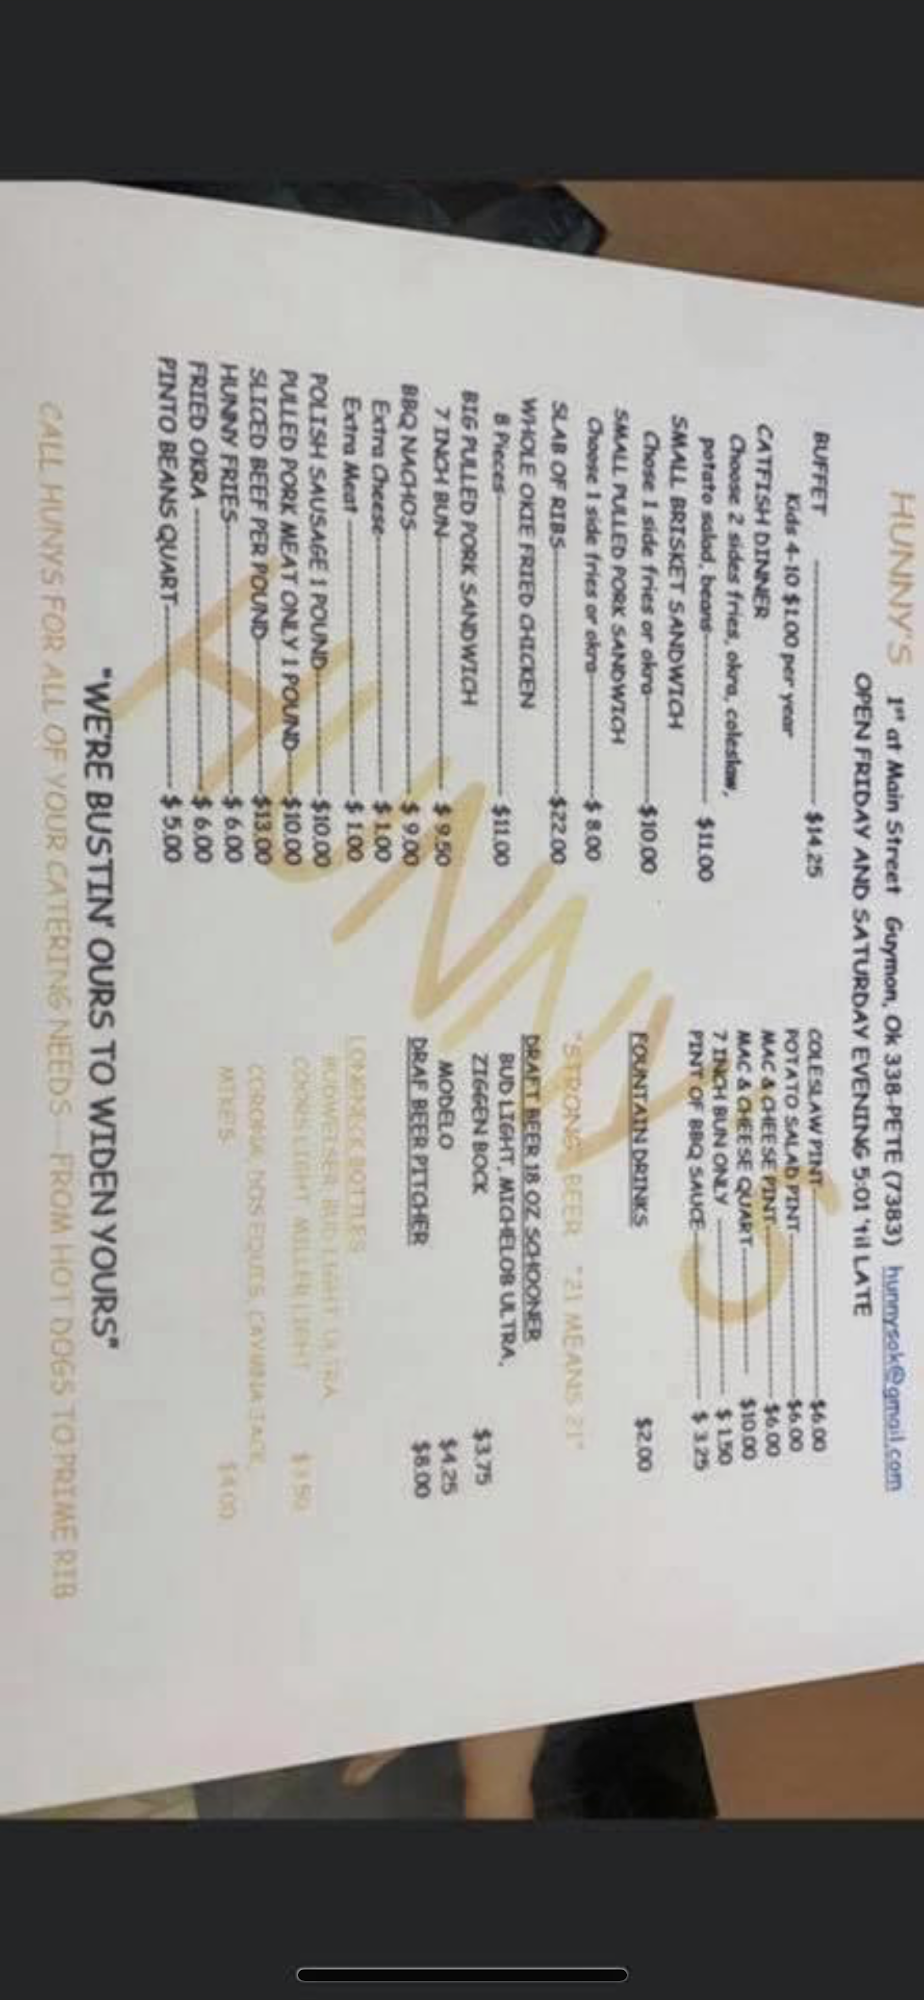 HUNNY'S 1st at Main Street Guymon, Ok 338-PETE (7383) hunnysok@gmail.com
OPEN FRIDAY AND SATURDAY EVENING 5:01 'til LATE
BUFFET ---------- $14.25
Kids 4-10 $1.00 per year
CATFISH DINNER
Choose 2 sides fries, okra, coleslaw,
potato salad, beans---------- $11.00
SMALL BRISKET SANDWICH
Chose 1 side fries or okra----------$10.00
SMALL PULLED PORK SANDWICH
Choose 1 side fries or okra----------$ 8.00
SLAB OF RIBS----------$22.00
WHOLE OKIE FRIED CHICKEN
8 Pieces---------- $11.00
BIG PULLED PORK SANDWICH
7 INCH BUN---------- $ 9.50
BBQ NACHOS---------- $ 9.00
Extra Cheese---------- $ 1.00
Extra Meat ---------- $ 1.00
POLISH SAUSAGE 1 POUND----------$10.00
PULLED PORK MEAT ONLY 1 POUND----$10.00
SLICED BEEF PER POUND----------$13.00
HUNNY FRIES----------$ 6.00
FRIED OKRA ----------$ 6.00
PINTO BEANS QUART---------- $ 5.00
COLESLAW PINT----------$6.00
POTATO SALAD PINT----------$6.00
MAC & CHEESE PINT----------$6.00
MAC & CHEESE QUART---------- $10.00
7 INCH BUN ONLY ---------- $ 1.50
PINT OF BBQ SAUCE---------- $ 3.25
FOUNTAIN DRINKS $2.00
"STRONG" BEER "21 MEANS 21"
DRAFT BEER 18 OZ SCHOONER
BUD LIGHT, MICHELOB ULTRA,
ZIGGEN BOCK $3.75
MODELO $4.25
DRAF BEER PITCHER $8.00
LONGNECK BOTTLES
BUDWEISER, BUD LIGHT, ULTRA
COORS LIGHT, MILLER LIGHT $3.50
CORONA, DOS EQUIS,
MIKES $4.00
HUNNY'S
"WE'RE BUSTIN' OURS TO WIDEN YOURS"
CALL HUNYS FOR ALL OF YOUR CATERING NEEDS---FROM HOT DOGS TO PRIME RIB